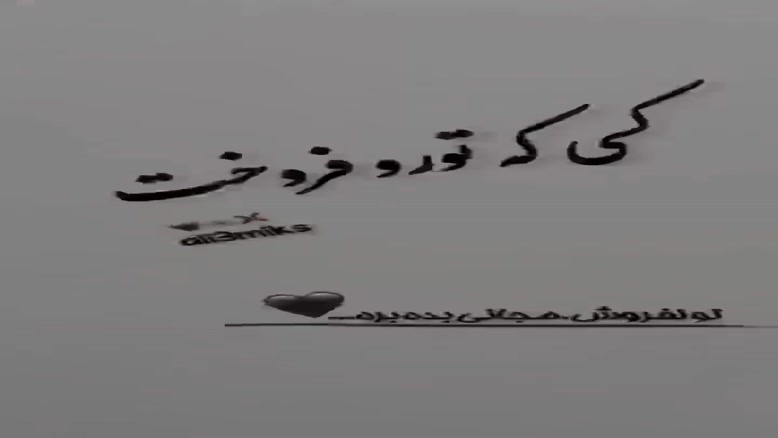 کی که تورو فروخت
ali3miks
تو نفروش.مجانی بده بره...